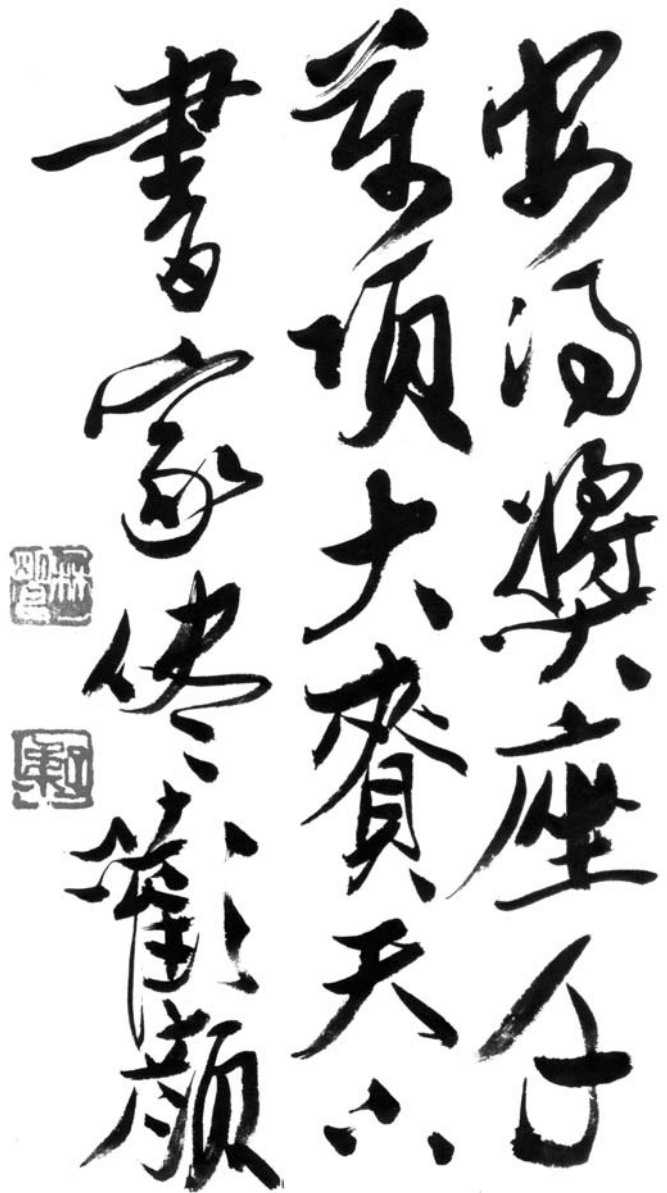 安得獎座千
萬項大賚天下
書家儘歡顏